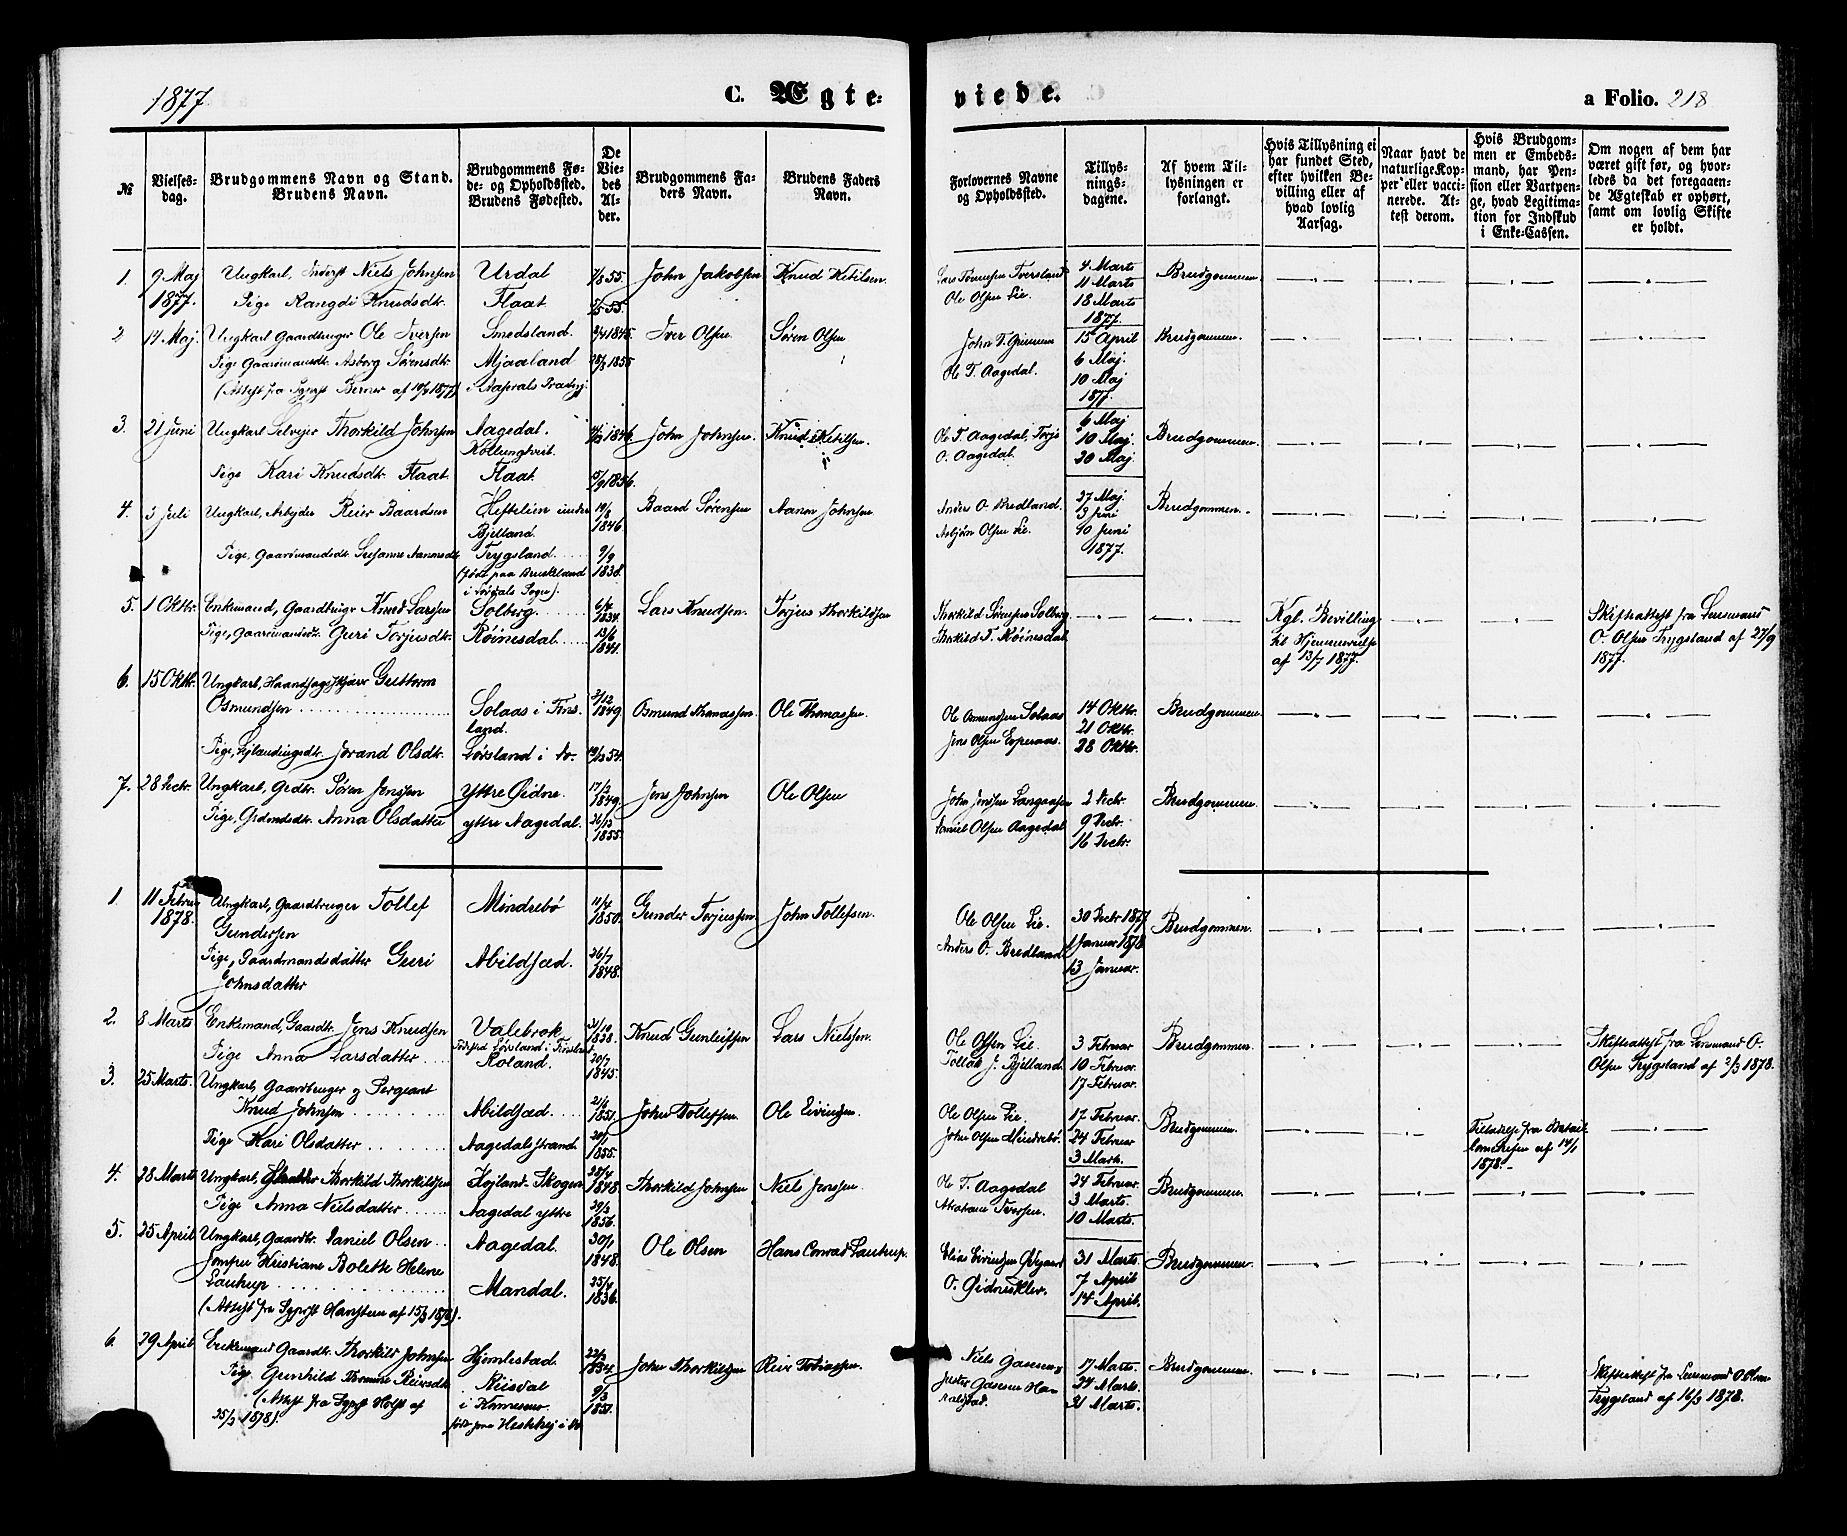 1877
C. Ægteviede.
a Folio. 218
№
Vielsesdag.
Brudgommens Navn og Stand.
Brudens Navn.
Brudgommens Føde- og Opholdssted.
Brudens Fødested.
De Viedes Alder.
Brudgommens Faders Navn.
Brudens Faders Navn.
Forlovernes Navne og Opholdssted.
Tillysningsdagene.
Af hvem Tillysningen er forlangt.
Hvis Tillysning ei har fundet Sted, efter hvilken Bevilling eller af hvad lovlig Aarsag.
Naar havt de naturlige Kopper eller vaccinerede. Attest derom.
Hvis Brudgommen er Embedsmand, har Pension eller Vartpenge, hvad Legitimation for Indskud i Enke-Cassen.
Om nogen af dem har været gift før, og hvorledes da det foregaaende Ægteskab er ophørt, samt om lovlig Skifte er holdt.
1. 9 Maj 1877. Ungkarl, Inderst Niels Johnsen Urdal 55 John Jakobsen Knud Ketilsen. Lars Tversland 4 Marts Brudgommen
Pige Rangdi Knudsdtr. Flaat 55. Ole Olsen Lie. 11 Marts
18 Marts
1877.
2 14 Maj. Ungkarl Gaardbruger Ole Iversen Smedsland. 1845. Iver Olsen Søren Olsen John T. 15 April Brudgommen.
Pige Gaardmandsdtr. Asborg Sørensdtr. Mjaaland 1855 Ole T. Aagedal. 6 Maj.
(Attest fra Sgprst Berner af 1877) 10 Maj
1877.
3. 21 Juni Ungkarl Selvejer Thorkild Johnsen Aagedal. 1846 John Johnsen. Knud Ketilsen. Ole T. Aagedal, Torjs 6 Maj Brudgommen
Kollungtveit. O. Aagedal. 10 Maj.
Pige Kari Knudsdtr. Flaat Flaat 1856. 20 Maj
4. 3 Juli Ungkarl, Arbejder Reier Baardsen Heftelien under 1846 Baard Sørensen Aanon Johnsen Anders O. Bredland. 27 Maj. Brudgommen.
Bjelland. Asbjørn Olsen Lie. 3 Juni
Pige, Gaardmandsdtr. Susanne Aanonsdtr. Trygsland 9/9 1838. 10 Juni
(født paa 1877.
i Løvdals Sogn).
5. 1 Oktbr. Enkemand, Gaardbruger Knud Larssen Solberg. 1834. Lars Knudsen. Torjus Thorkildsen Thorkild Sørensen Solberg Kgl. Bevilling Skifteattest fra Lensmand
Pige, Gaardmandsdtr. Guri Torjusdtr. Røinesdal 13/6 1841. Thorkild T. Røinesdal til Hjemmevielse O. Olsen Trygsland af 27/9
af 13/7 1877. 1877.
6. 15 Oktbr. Ungkarl, Guttorm
Osmundsen Solaas i Finsland. 3/12 1849 Osmund Thomassen Ole Thomassen. Ole Osmundsen Solaas 14 Oktbr. Brudgommen
Jens Olsen Esperaas. 21 Oktbr.
Pige, Jorand Olsdtr. Løvsland i do. 54. 28 Oktbr.
7. 28 Decbr. Ungkarl, Grdbr. Søren Jenssen Yttre Øidne. 17/2 1849. Jens Johnsen Ole Olsen John Jenssen Langaasen 2 Decbr. Brudgommen
Pige, Grdmdsdtr. Anna Olsdatter yttre Aagedal. 26/12 1855. Daniel Olsen Aagedal 9 Decbr.
16 Decbr.
1. 11 Februar 1878. Ungkarl, Gaardbruger Tollef Mindrebø 11/4 1850. Gunder Torjussen John Tollefsen. Ole Olsen Lie. 30 Decbr 1877 Brudgommen.
Gundersen Anders O. Bredland 1 Januar 1878
Pige, Gaardmandsdatter Guri Abildsæd. 26/7 1848. 13 Januar.
Johnsdatter
2. 8 Marts Enkemand, Gaardbr. Jens Knudsen Valebrok 21/10 1838. Knud Gunleifsen Lars Nielsen. Ole Olsen Lie. 3 Februar Brudgommen Skifteattest fra Lensmand O.
Fødested Løvsland i Finsland Tollak J. Bjelland. 10 Februar. Olsen Trygsland af 2/3 1878.
Pige Anna Larsdatter Roland. 20/7 1845. 17 Februar.
3. 25 Marts. Ungkarl, Gaardbruger og Sergeant
Knud Johnsen Abildsæd. 1851. John Tollefsen Ole Eivindsen. Ole Olsen Lie. 17 Februar. Brudgommen. Tilladelse fra Batail
Pige Kari Olsdatter Aagedalstrand. 20/1 1855. John Olsen Mindrebø. 24 Februar lonschefen af 14/1
3 Marts. 1878.
4. 28 Marts Ungkarl, Thorkild Thorkildsen Højland-Skogen 28/4 1848 Thorkild Johnsen Niels Jensen. Ole T. Aagedal 24 Februar. Brudgommen.
Pige Anna Nielsdatter Aagedal yttre 29/3 1856. Abraham Iversen. 3 Marts.
10 Marts.
5. 25 April Ungkarl, Gaardbr. Daniel Olsen Aagedal. 30/1 1848. Ole Olsen Hans Conrad Lautrup. Elias Eivindsen Ødegaard 31 Marts. Brudgommen.
Jomfru Kristiane Bolette Helene O. Øidneskler. 7 April
Lautrup Mandal. 25/4 1836. 14 April.
(Attest fra Sgprst Hansteen af 15/3 1878).
6. 29 April Enkemand Gaardbr. Thorkild Johnsen Hjemlestad. 22/3 1834. John Thorkildsen Reier Tobiassen. Niels Gaasesen 17 Marts. Brudgommen Skifteattest fra Lensmand O. Olsen
Pige Gunhild Thomine Reiersdtr. Reisdal 9/3 1851. 24 Marts. Trygsland af 16/3 1878.
(Attest fra Sgprst Holst af i Kvinesen 31 Marts.
25/3 1878). født paa